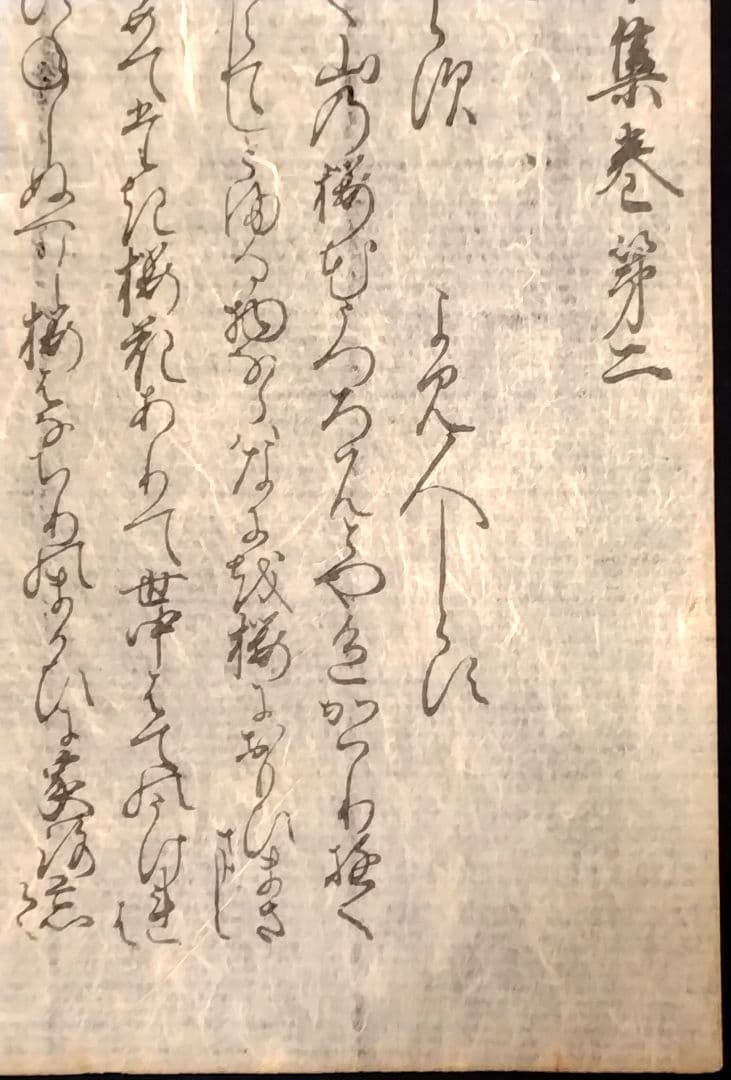 集巻第二
らす
よみ人しらす
く山の桜花うつろはんとや色かはりゆく
らてしとまる物ならはなにを桜におもひまさまし
めてたき桜花ありて世中はてのうけれは
ねしぬへし桜はなちりのまかひに家路忘て